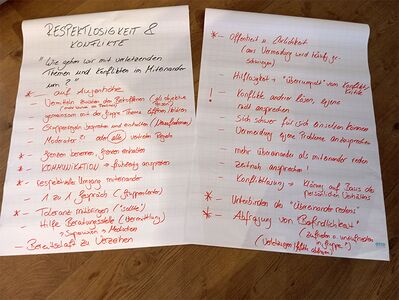 RESPEKTLOSIGKEIT &
KONFLIKTE
"Wie gehen wir mit verletzenden
Themen und Konflikten im Miteinander
um?"
* - auf Augenhöhe
- Vermitteln zwischen den Betroffenen (als objektive
gemeinsam mit der Gruppe Thema öffnen/klären
- Gruppenregeln besprechen und einhalten
Moderator?! oder alle vertreten Regeln
* - Grenzen benennen, Grenzen einhalten
* - KOMMUNIKATION → frühzeitig ansprechen
* - respektvoller Umgang miteinander
- 1 zu 1 Gespräch (Gruppenleiter)
* - Toleranz mitbringen ("Sollte")
- Hilfe Beratungsstelle (Vermittlung)
→ Supervision → Mediation
- Bereitschaft zu Verzeihen
* - Offenheit u. Ehrlichkeit
(aus Vermeidung wird häufig ge-
schwiegen)
- Hilflosigkeit + "überrumpelt" von Konflikt/
Kritik
! - Konflikte anderer lösen, eigene
nicht ansprechen
- Sich schwer für sich einsetzen können
- Vermeidung eigene Probleme anzusprechen
- mehr übereinander als miteinander reden
- zeitnah ansprechen!
- Konfliktlösung → Klärung auf Basis des
persönlichen Verhältnis
* - Unterbinden des "Übereinander redens"
* - Abfragung von "Befindlichkeit"
(zufrieden o. unzufrieden
in Gruppe")